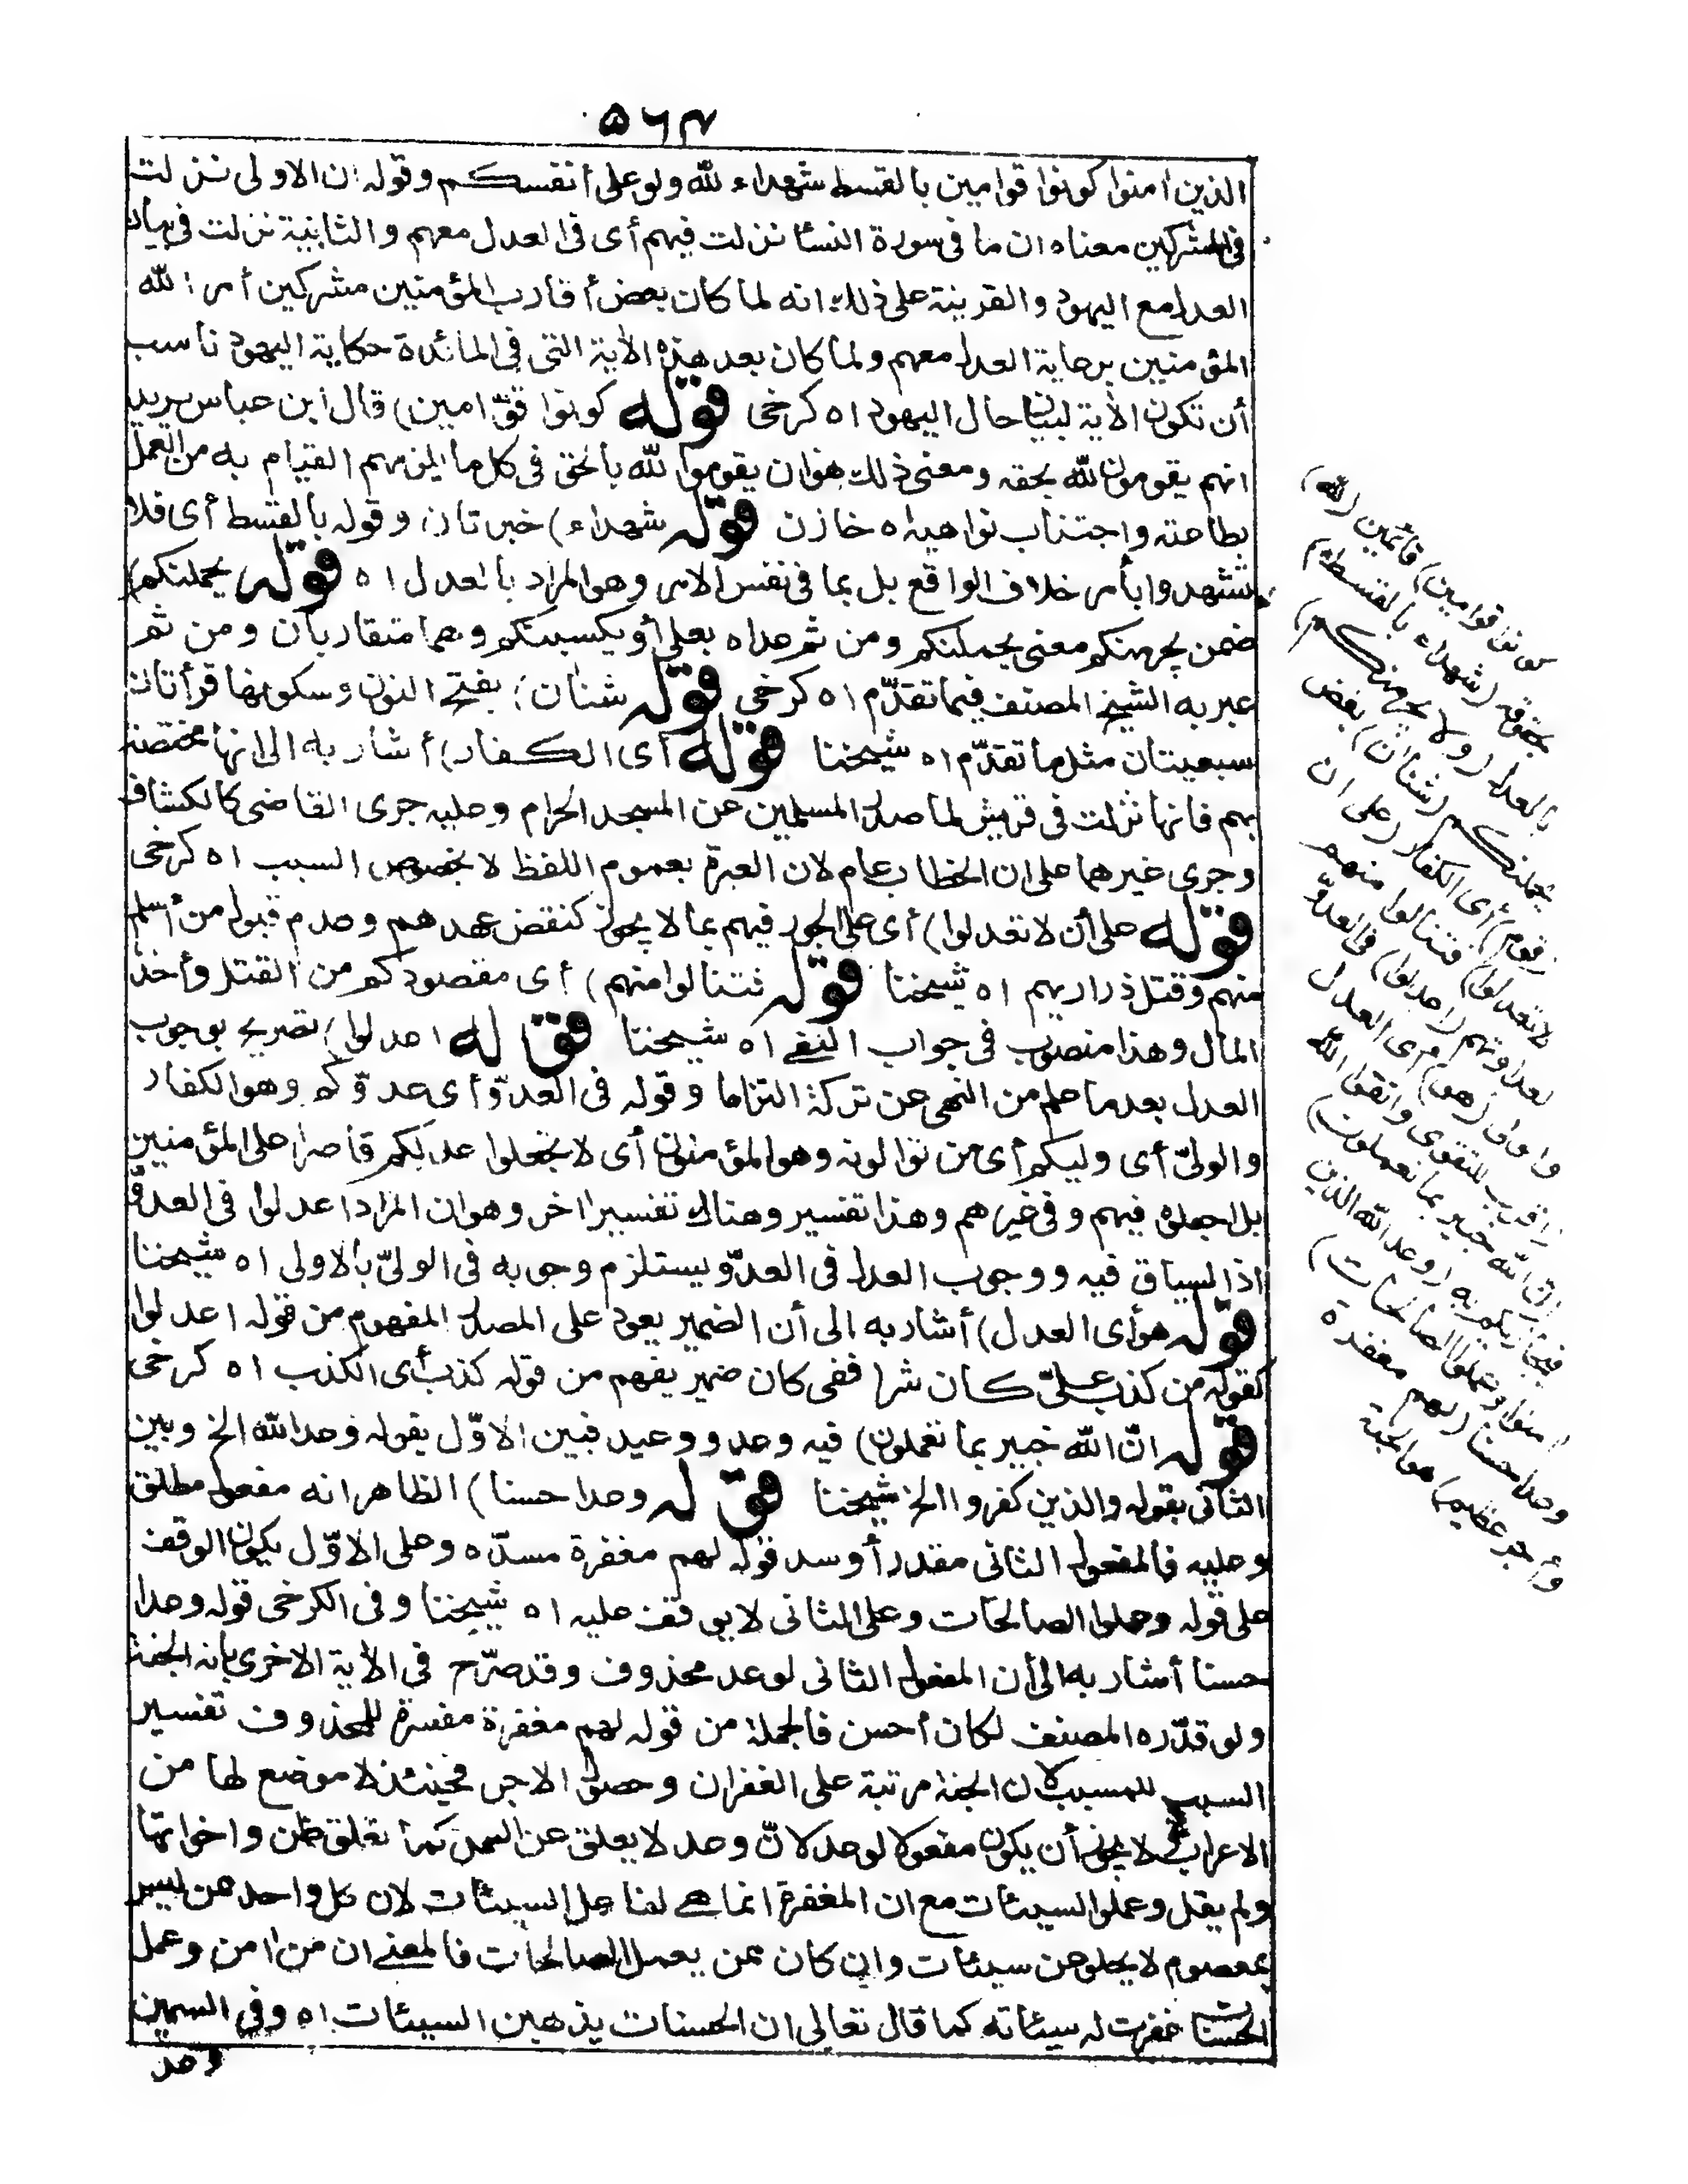 ٥٦٤
الذين امنوا كونوا قوامين بالقسط شهداء لله ولو على أنفسكم وقوله ان الاولى نزلت
فى المشركين معناه ان ما فى سورة النسا نزلت فيهم أى فى العدل معهم والثانية نزلت فى بيان
العدل مع اليهود والقرينة على ذلك انه لما كان بعض أقارب المؤمنين مشركين أمر الله
المؤمنين برعاية العدل معهم ولما كان بعد هذه الأية التى فى المائدة حكاية اليهود ناسب
أن تكون الأية لبيان حال اليهود اه كرخى قوله كونوا قوّامين) قال ابن عباس يريد
انهم يقومون لله بحقه ومعنى ذلك هو ان يقوموا لله بالحق فى كل ما يلزمهم القيام به من العمل
بطاعته واجتناب نواهيه اه خازن قوله شهداء) خبر ثان وقوله بالقسط أى فلا
تشهدوا بأمر خلاف الواقع بل بما فى نفس الامر وهو المراد بالعدل اه قوله يحملنكم)
ضمن يجرمنكم معنى يحملنكم ومن ثم عداه بعلى أو يكسبنكم وهما متقاربان ومن ثم
عبر به الشيخ المصنف فيما تقدّم اه كرخى قوله شنان) بفتح النون وسكونها قرأتان
سبعيتان مثل ما تقدّم اه شيخنا قوله أى الكفار) أشار به الى انها مختصة
بهم فانها نزلت فى قريش لما صدّوا المسلمين عن المسجد الحرام وعليه جرى القاضى كالكشاف
وجرى غيرهما على ان الخطاب عام لان العبرة بعموم اللفظ لا بخصوص السبب اه كرخى
قوله على أن لا تعدلوا) أى على الجور فيهم بما لا يجوز كنقض عهدهم وعدم قبول من أسلم
منهم وقتل ذراريهم اه شيخنا قوله فتنالوا منهم) أى مقصودكم من القتل وأخذ
المال وهذا منصوب فى جواب النفى اه شيخنا قوله اعدلوا) تصريح بوجوب
العدل بعد ما علم من النهى عن تركه التزاما وقوله فى العدوّ أى عدوّكم وهو الكفار
والولىّ أى وليكم أى من توالونه وهو المؤمنون أى لا تجعلوا عدلكم قاصرا على المؤمنين
بل اجعلوه فيهم وفى غيرهم وهذا تفسير وهناك تفسير اخر وهو ان المراد اعدلوا فى العدوّ
اذ السياق فيه ووجوب العدل فى العدوّ يستلزم وجوبه فى الولىّ بالاولى اه شيخنا
قوله هو أى العدل) أشار به الى أن الضمير يعود على المصدر المفهوم من قوله اعدلوا
كقوله من كذب علىّ كان شرا ففى كان ضمير يفهم من قوله كذب أى الكذب اه كرخى
قوله انّ الله خبير بما تعملون) فيه وعد ووعيد فبين الاوّل بقوله وعد الله الخ وبين
الثانى بقوله والذين كفروا الخ شيخنا قوله وعدا حسنا) الظاهر انه مفعول مطلق
وعليه فالمفعول الثانى مقدر أو سد قوله لهم مغفرة مسدّه وعلى الاوّل يكون الوقف
على قوله وعملوا الصالحات وعلى الثانى لا يوقف عليه اه شيخنا وفى الكرخى قوله وعدا
حسنا أشار به الى أن المفعول الثانى لوعد محذوف وقد صرّح فى الأية الاخرى بانه الجنة
ولو قدّره المصنف لكان أحسن فالجملة من قوله لهم مغفرة مفسرة للمحذوف تفسير
السبب للمسبب لان الجنة مرتبة على الغفران وحصول الاجر فحينئذ لا موضع لها من
الاعراب لا يجوز أن يكون مفعولا لوعد لانّ وعد لا يعلق عن العمل كما تعلق ظن واخواتها
ولم يقل وعملوا السيئات مع ان المغفرة انما هى لفاعل السيئات لان كل واحد ممن ليس
بمعصوم لا يخلو عن سيئات وان كان ممن يعمل الصالحات فالمعنى ان من امن وعمل
الحسنات غفرت له سيئاته كما قال تعالى ان الحسنات يذهبن السيئات اه وفى السمين
وعد
كونوا قوامين) قائمين (لله)
بحقوقه (شهداء بالقسط)
بالعدل (ولا يجرمنكم)
يحملنكم (شنأن) بغض
(قوم) أى الكفار (على ان
لا تعدلوا) فتنالوا منهم
لعداوتهم (اعدلوا) فى العدوّ
والولى (هو) أى العدل
(اقرب للتقوى واتقوا الله
ان الله خبير بما تعملون)
فيجازيكم به (وعد الله الذين
امنوا وعملوا الصالحات)
وعدا حسنا (لهم مغفرة
وأجر عظيم) هو الجنة